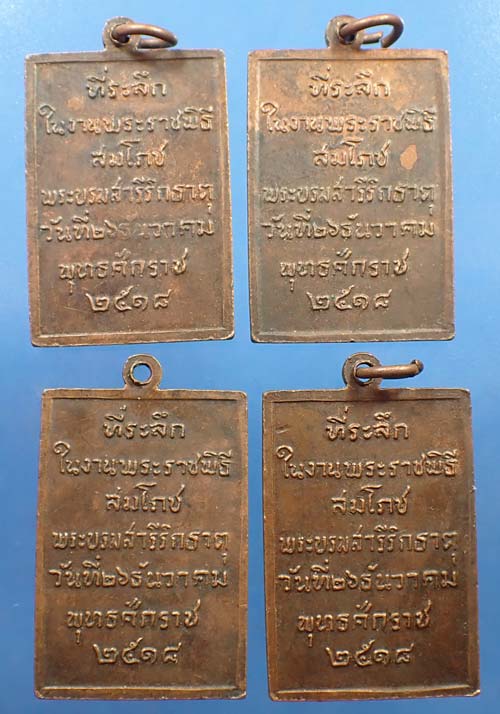 ที่ระลึก
ในงานพระราชพิธี
สมโภช
พระบรมสารีริกธาตุ
วันที่๒๖ธันวาคม
พุทธศักราช
๒๕๑๘
ที่ระลึก
ในงานพระราชพิธี
สมโภช
พระบรมสารีริกธาตุ
วันที่๒๖ธันวาคม
พุทธศักราช
๒๕๑๘
ที่ระลึก
ในงานพระราชพิธี
สมโภช
พระบรมสารีริกธาตุ
วันที่๒๖ธันวาคม
พุทธศักราช
๒๕๑๘
ที่ระลึก
ในงานพระราชพิธี
สมโภช
พระบรมสารีริกธาตุ
วันที่๒๖ธันวาคม
พุทธศักราช
๒๕๑๘